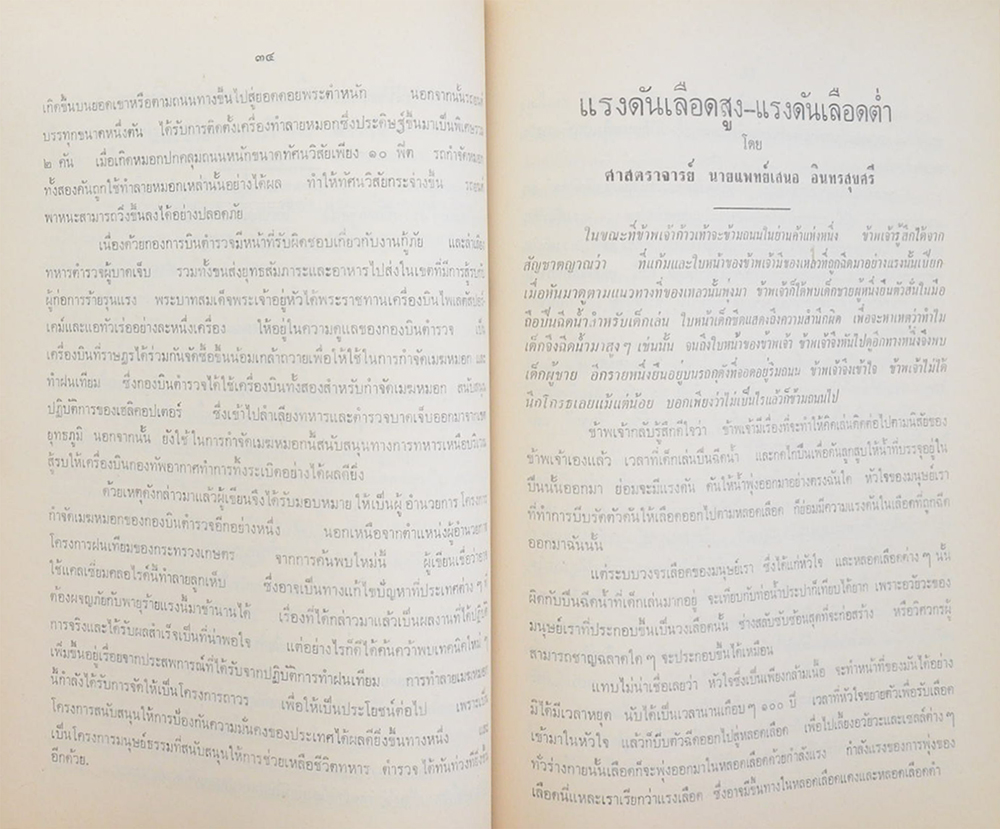 ๓๔
เกิดขึ้นบนยอดเขาหรือตามถนนทางขึ้นไปสู่ยอดดอยพระตำหนัก นอกจากนั้นรถยนต์
บรรทุกขนาดหนึ่งตัน ได้รับการติดตั้งเครื่องทำลายหมอกซึ่งประดิษฐ์ขึ้นมาเป็นพิเศษรวม
๒ คัน เมื่อเกิดหมอกปกคลุมถนนหนักขนาดทัศนวิสัยเพียง ๑๐ ฟิต รถกำจัดหมอก
ทั้งสองคันถูกใช้ทำลายหมอกเหล่านั้นอย่างได้ผล ทำให้ทัศนวิสัยกระจ่างขึ้น รถยนต์
พาหนะสามารถวิ่งขึ้นลงได้อย่างปลอดภัย
เนื่องด้วยกองการบินตำรวจมีหน้าที่รับผิดชอบเกี่ยวกับงานกู้ภัย และลำเลียง
ทหารตำรวจผู้บาดเจ็บ รวมทั้งขนส่งยุทธสัมภาระและอาหารไปส่งในเขตที่มีการสู้รบกับ
ผู้ก่อการร้ายรุนแรง พระบาทสมเด็จพระเจ้าอยู่หัวได้พระราชทานเครื่องบินไพเลตัสปอร์
เตอร์และแอทัวเร่อย่างละหนึ่งเครื่อง ให้อยู่ในความดูแลของกองบินตำรวจ เป็น
เครื่องบินที่ราษฎรได้ร่วมกันจัดซื้อขึ้นน้อมเกล้าถวายเพื่อให้ใช้ในการกำจัดเมฆหมอก และ
ทำฝนเทียม ซึ่งกองบินตำรวจได้ใช้เครื่องบินทั้งสองสำหรับกำจัดเมฆหมอก สนับสนุน
ปฏิบัติการของเฮลิคอปเตอร์ ซึ่งเข้าไปลำเลียงทหารและตำรวจบาดเจ็บออกมาจากเขต
ยุทธภูมิ นอกจากนั้น ยังใช้ในการกำจัดเมฆหมอกนี้สนับสนุนทางการทหารเหนือบริเวณ
สู้รบให้เครื่องบินกองทัพอากาศทำการทิ้งระเบิดอย่างได้ผลดียิ่ง
ด้วยเหตุดังกล่าวมาแล้วผู้เขียนจึงได้รับมอบหมาย ให้เป็นผู้อำนวยการโครงการ
กำจัดเมฆหมอกของกองบินตำรวจอีกอย่างหนึ่ง นอกเหนือจากตำแหน่งผู้อำนวยการ
โครงการฝนเทียมของกระทรวงเกษตร จากการค้นพบใหม่นี้ ผู้เขียนเชื่อว่าอาจ
ใช้แคลเซี่ยมคลอไรด์นี้ทำลายลูกเห็บ ซึ่งอาจเป็นทางแก้ไขปัญหาที่ประเทศต่าง ๆ
ต้องผจญภัยกับพายุร้ายแรงนี้มาช้านานได้ เรื่องที่ได้กล่าวมาแล้วเป็นผลงานที่ได้ปฏิบัติ
การจริงและได้รับผลสำเร็จเป็นที่น่าพอใจ แต่อย่างไรก็ดีได้ค้นคว้าพบเทคนิคใหม่ ๆ
เพิ่มขึ้นอยู่เรื่อยจากประสพการณ์ที่ได้รับจากปฏิบัติการทำฝนเทียม การทำลายเมฆหมอก
นี้กำลังได้รับการจัดให้เป็นโครงการถาวร เพื่อให้เป็นประโยชน์ต่อไป เพราะเป็น
โครงการสนับสนุนให้การป้องกันความมั่นคงของประเทศได้ผลดียิ่งขึ้นทางหนึ่ง และ
เป็นโครงการมนุษย์ธรรมที่สนับสนุนให้การช่วยเหลือชีวิตทหาร ตำรวจ ได้ทันท่วงทียิ่งขึ้น
อีกด้วย.
แรงดันเลือดสูง-แรงดันเลือดต่ำ
โดย
ศาสตราจารย์ นายแพทย์เสนอ อินทรสุขศรี
ในขณะที่ข้าพเจ้าก้าวเท้าจะข้ามถนนในย่านค้าแห่งหนึ่ง ข้าพเจ้ารู้สึกได้จาก
สัญชาตญาณว่า ที่แก้มและใบหน้าของข้าพเจ้ามีของเหลวที่ถูกฉีดมาอย่างแรงนั้นเปียก
เมื่อหันมาดูตามแนวทางที่ของเหลวนั้นพุ่งมา ข้าพเจ้าก็ได้พบเด็กชายผู้หนึ่งยืนตัวสั่นในมือ
ถือปืนฉีดน้ำสำหรับเด็กเล่น ใบหน้าเด็กซีดแสดงถึงความสำนึกผิด เพื่อจะหาเหตุว่าทำไม
เด็กจึงฉีดน้ำมาสูง ๆ เช่นนั้น จนถึงใบหน้าของข้าพเจ้า ข้าพเจ้าจึงหันไปดูอีกทางหนึ่งจึงพบ
เด็กผู้ชาย อีกรายหนึ่งยืนอยู่บนรถกุดังที่จอดอยู่ริมถนน ข้าพเจ้าจึงเข้าใจ ข้าพเจ้าไม่ได้
นึกโกรธเลยแม้แต่น้อย บอกเพียงว่าไม่เป็นไรแล้วก็ข้ามถนนไป
ข้าพเจ้ากลับรู้สึกดีใจว่า ข้าพเจ้ามีเรื่องที่จะทำให้คิดเล่นคิดต่อไปตามนิสัยของ
ข้าพเจ้าเองแล้ว เวลาที่เด็กเล่นปืนฉีดน้ำ และกดไกปืนเพื่อดันลูกสูบให้น้ำที่บรรจุอยู่ใน
ปืนนั้นออกมา ย่อมจะมีแรงดัน ดันให้น้ำพุ่งออกมาอย่างตรงฉันใด หัวใจของมนุษย์เรา
ที่ทำการบีบรัดตัวดันให้เลือดออกไปตามหลอดเลือด ก็ย่อมมีความแรงดันในเลือดที่ถูกฉีด
ออกมาฉันนั้น
แต่ระบบวงจรเลือดของมนุษย์เรา ซึ่งได้แก่หัวใจ และหลอดเลือดต่าง ๆ นั้น
ผิดกับปืนฉีดน้ำที่เด็กเล่นมากอยู่ จะเทียบกับท่อน้ำประปาก็เทียบได้ยาก เพราะอวัยวะของ
มนุษย์เราที่ประกอบขึ้นเป็นวงเลือดนั้น ช่างสลับซับซ้อนสุดที่จะก่อสร้าง หรือวิศวกรผู้
สามารถชาญฉลาดใด ๆ จะประกอบขึ้นได้เหมือน
แทบไม่น่าเชื่อเลยว่า หัวใจซึ่งเป็นเพียงกล้ามเนื้อ จะทำหน้าที่ของมันได้อย่าง
มิได้มีเวลาหยุด นับได้เป็นเวลานานเกือบ ๆ ๑๐๐ ปี เวลาที่หัวใจขยายตัวเพื่อรับเลือด
เข้ามาในหัวใจ แล้วก็บีบตัวฉีดออกไปสู่หลอดเลือด เพื่อไปเลี้ยงอวัยวะและเซลล์ต่าง ๆ
ทั่วร่างกายนั้นเลือดก็จะพุ่งออกมาในหลอดเลือดด้วยกำลังแรง กำลังแรงของการพุ่งของ
เลือดนี่แหละเราเรียกว่าแรงเลือด ซึ่งอาจมีขึ้นทางในหลอดเลือดแดงและหลอดเลือดดำ